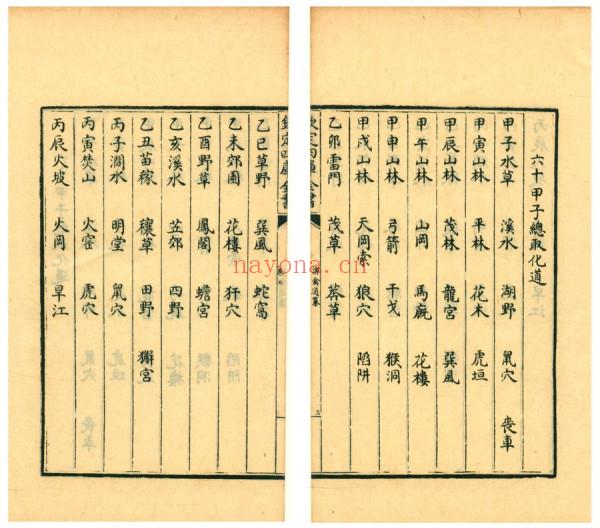 六十甲子總取化道
甲子水草 溪水 湖野 鼠穴 喪車
甲寅山林 平林 花木 虎垣
甲辰山林 茂林 龍宮 巽風
甲午山林 山岡 馬廐 花樓
甲申山林 弓箭 干戈 猴洞
甲戌山林 天岡索 狼穴 陷阱
乙卯雷門 茂草 莽草
欽定四庫全書
演禽通纂
乙巳草野 巽風 蛇窩
乙未郊園 花樓 犴穴
乙酉野草 鳳閣 蟾宮
乙亥溪水 苙郊 四野
乙丑苗稼 穰草 田野 獬宮
丙子澗水 明堂 鼠穴
丙寅焚山 火窖 虎穴
丙辰火坡 火岡 旱江
nayona.cn